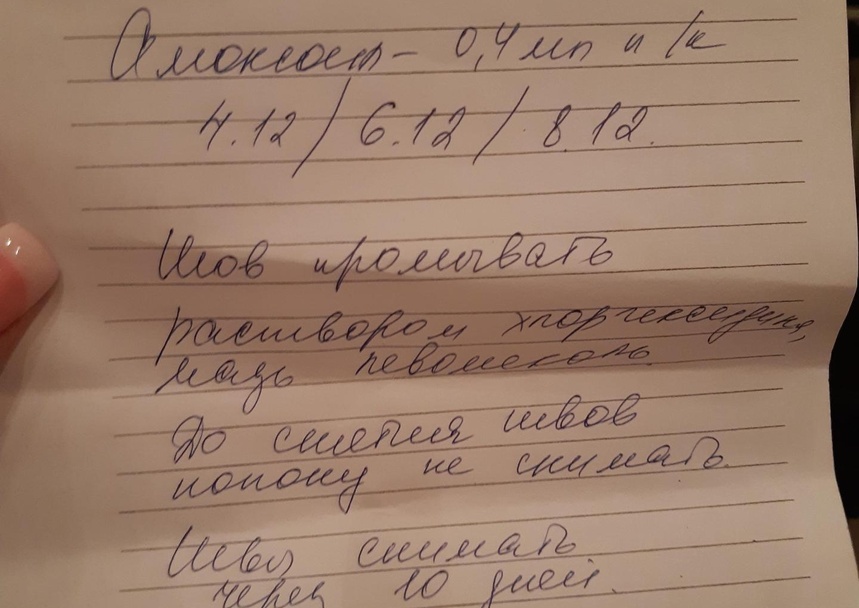 Амоксоил - 0,4 мл п/к
4.12 / 6.12 / 8.12.
Шов промывать
раствором хлоргексидина,
мазь левомеколь.
До снятия швов
попону не снимать.
Швы снимать
через 10 дней.